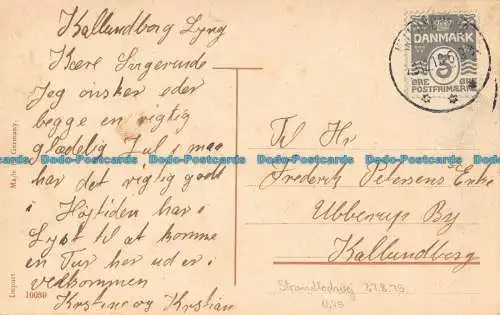 Kallundborg Lyng
Kære Svigerinde
Jeg ønsker eder
begge en rigtig
glædelig Jul i maa
har det rigtig godt
i Højtiden har i
Lyst til at komme
en Tur her ud er i
velkommen
Kristine og Kristian
DANMARK
5
ØRE ØRE
POSTFRIMÆRKE
Til Hr
Frederik Petersens Enke
Ubberup By
Kallundborg
Made in Germany.
Import
10089
27.8.75
0,45
Dodo-Postcards Dodo-Postcards Dodo-Postcards Dodo-Postcards